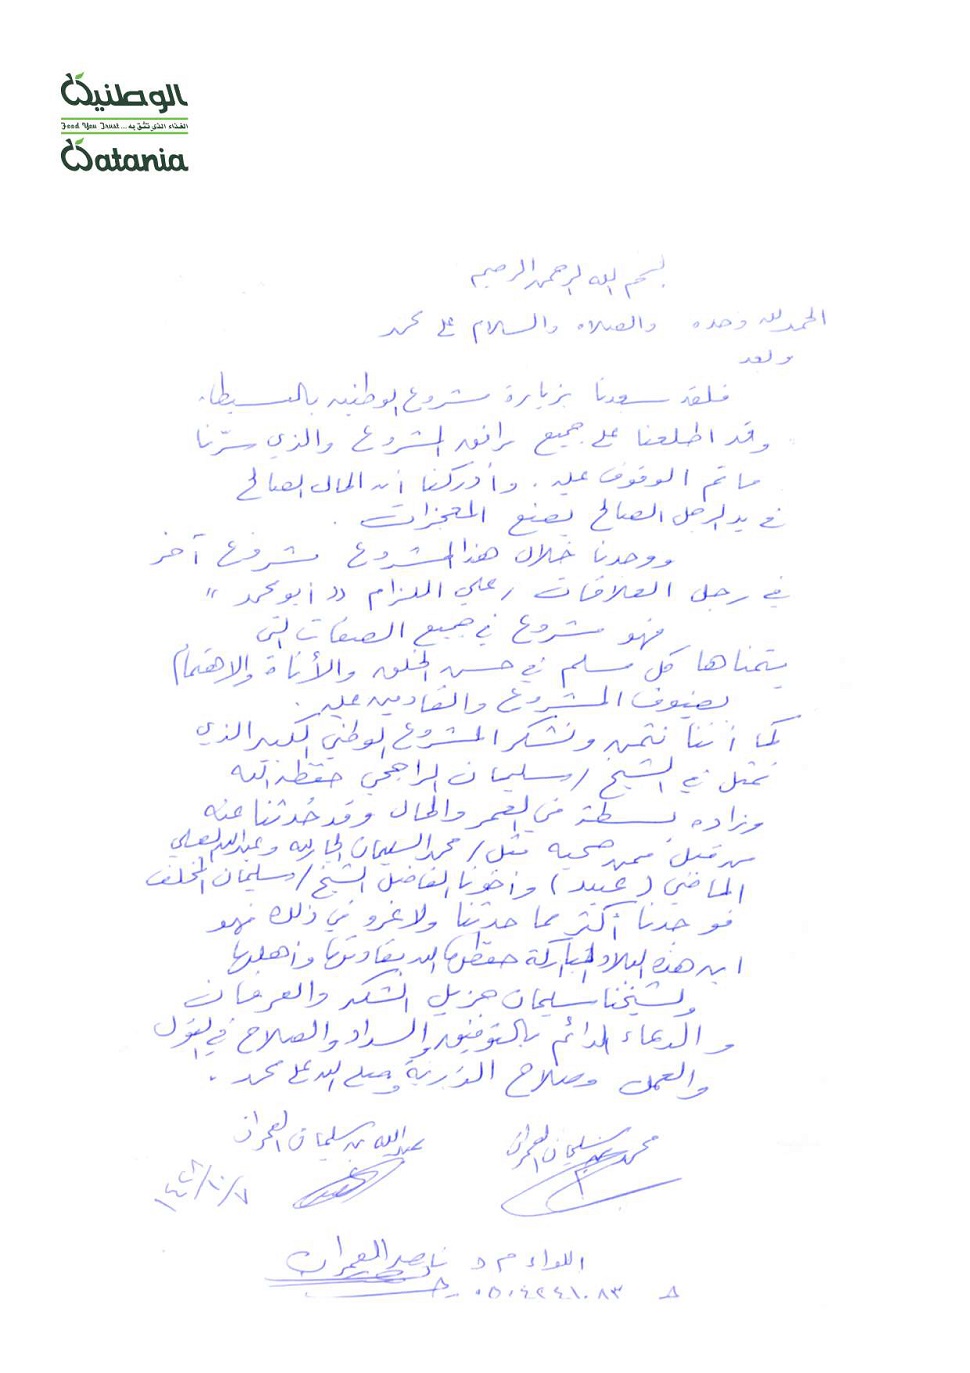 الوطنية
Food You Trust ... الغذاء الذي تثق به
Watania
بسم الله الرحمن الرحيم
الحمد لله وحده والصلاه والسلام على محمد
وبعد
فلقد سعدنا بزيارة مشروع الوطنيه بالبسيطاء
وقد اطلعنا على جميع مرافق المشروع والذي سرّنا
ما تم الوقوف عليه . وأدركنا أن المال الصالح
في يد الرجل الصالح يصنع المعجزات .
ووجدنا خلال هذا المشروع مشروع آخر
في رجل العلاقات / علي اللزام " أبو محمد "
فهو مشروع في جميع الصفات التي
يتمناها كل مسلم في حسن الخلق والأناة والاهتمام
بضيوف المشروع والقادمين عليه .
كما أننا نثمن ونشكر المشروع الوطني الكبير الذي
تمثل في الشيخ / سليمان الراجحي حفظه الله
وزاده بسطة في العمر والمال وقد حُدثنا عنه
من قبل ممن صحبه مثل / محمد السليمان الجارالله وعبدالله العلي
الماضي ( عبيد ) وأخونا الفاضل الشيخ / سليمان المخلف
فوجدنا أكثر مما حدثنا ولا غرو في ذلك فهو
ابن هذه البلاد المباركة حفظها الله بقادتها وأهلها
ولشيخنا سليمان جزيل الشكر والعرفان
والدعاء الدائم بالتوفيق والسداد والصلاح في القول
والعمل وصلاح الذرية وصلى الله على محمد .
محمد سليمان العمران
عبدالله بن سليمان العمران
١٤٢٨/١٠/٧
اللواء م د ناصر العمران
٠٥٠٤٢٤١٠٨٣